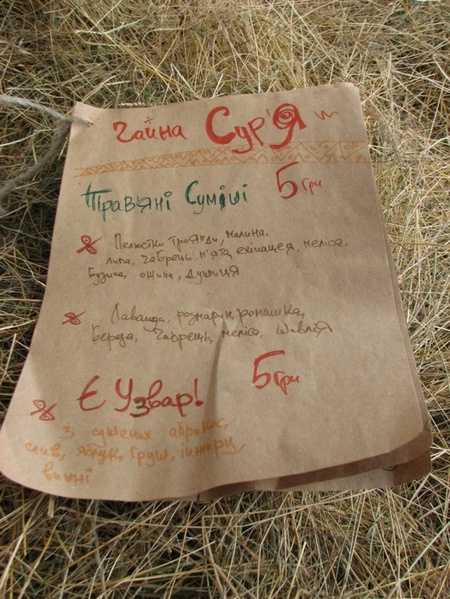 Чайна Сур'Я
Трав'яні Суміші 5 грн
Пелюстки троянди, малина,
липа, чабрець, м'ята, ехінацея, меліса,
бузина, ожина, душиця
Лаванда, розмарин, ромашка,
береза, чабрець, меліса, шавлія
5 грн
Є Узвар!
з сушених абрикос,
слив, яблук, груш, інжиру,
вишні